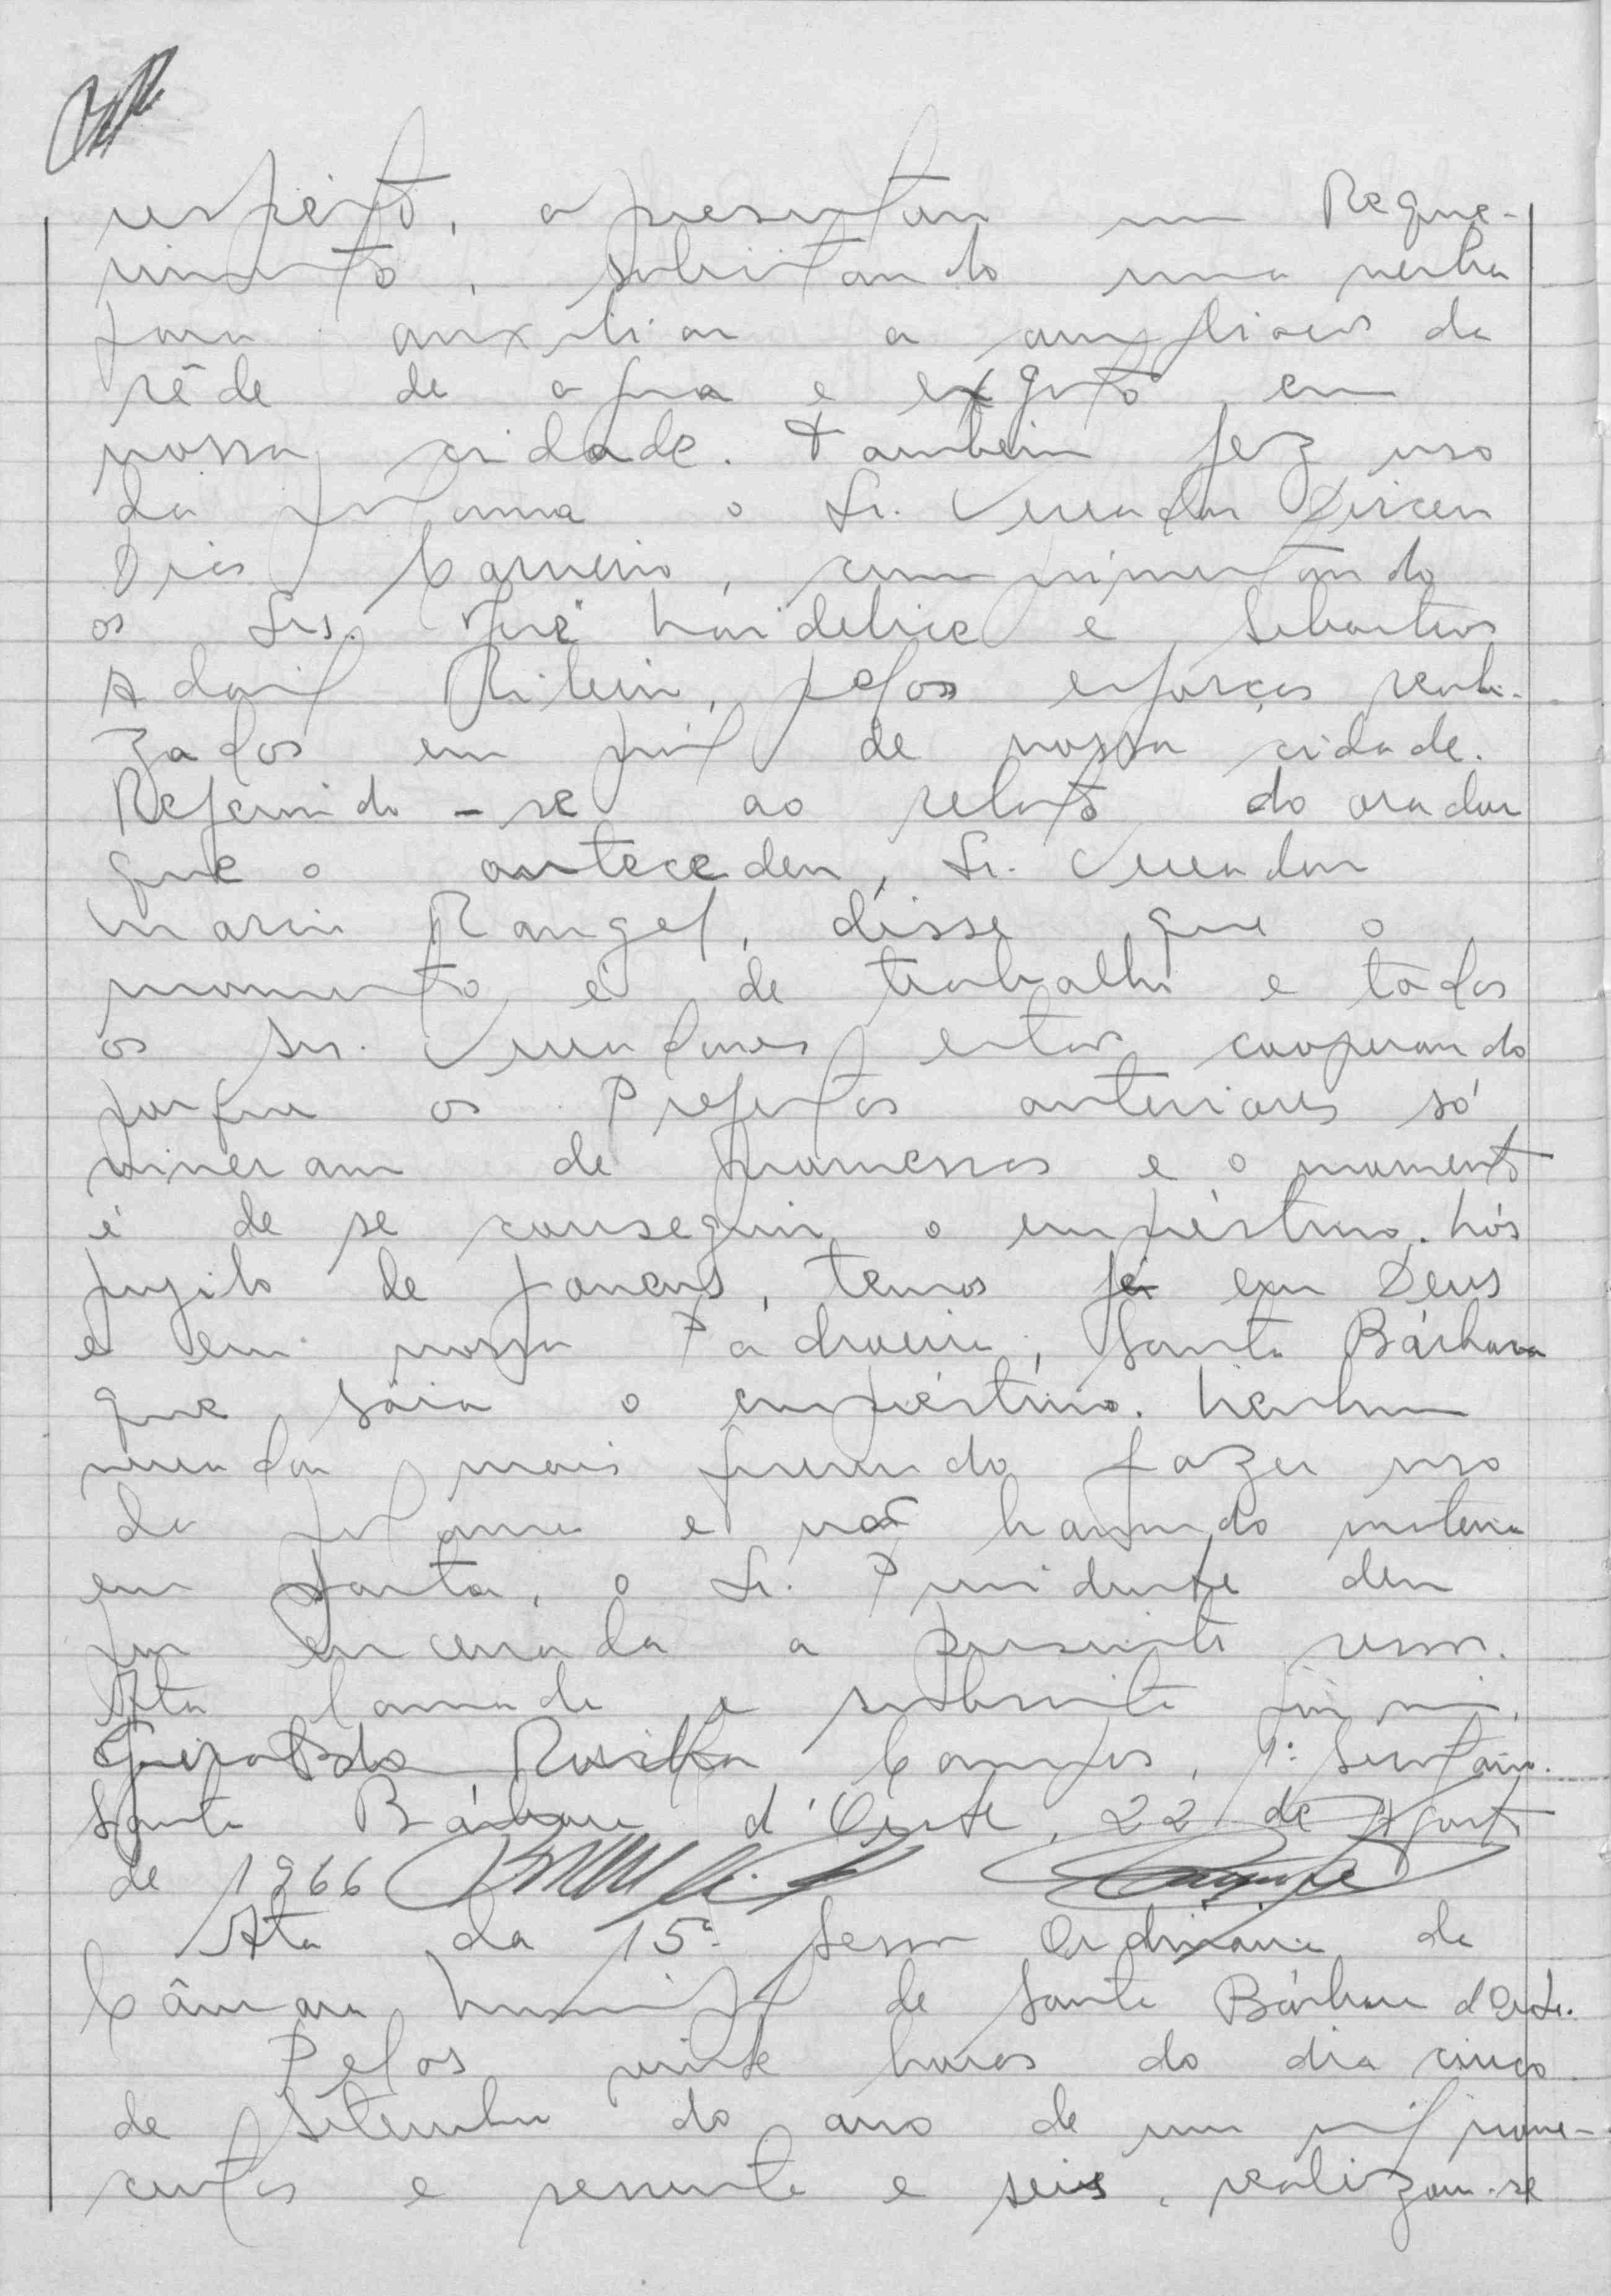 respeito, apresentou um Reque-
rimento, solicitando uma verba
para auxiliar a ampliação da
rêde de agua e exgoto em
nossa cidade. Também fez uso
da palavra o Sr. Vereador Dirceu
Dias Carneiro, cumprimentando
os Srs. José e Sebastião
Adail Ribeiro, pelos esforços reali-
zados em pról de nossa cidade.
Referindo-se ao relato do orador
que o antecedeu, Sr. Vereador
Mario Rangel, disse que o
momento é de trabalho e todos
os srs. Vereadores estão cooperando
porque os Prefeitos anteriores só
viveram de promessas e o momento
é de se conseguir o empréstimo. Nós
pugilo de jovens, temos fé em Deus
e em nossa Padroeira, Santa Bárbara
que sáia o empréstimo. Nenhum
vereador mais querendo fazer uso
da palavra e não havendo materia
em pauta, o Sr. Presidente deu
por encerrada a presente sessão.
Ata lavrada e subscrita por mim,
Geraldo Rocha Campos, 1º Secretário.
Santa Bárbara d'Oeste, 22 de Agosto
de 1966
Ata da 15ª Sessão Ordinária da
Câmara Municipal de Santa Bárbara d'Oeste.
Pelas vinte horas do dia cinco
de Setembro do ano de um mil nove-
centos e sessenta e seis, realizou-se